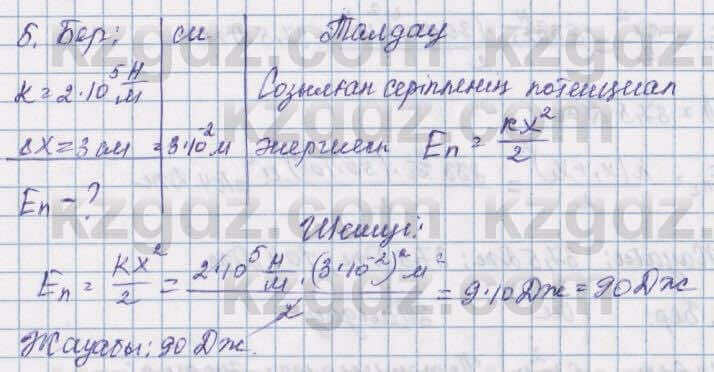 5. Бер: СИ Талдау
k = 2·10⁵ Н/м Созылған серіппенің потенциал
ΔX = 3 см = 3·10⁻² м энергиясы Eп = kx²/2
Eп - ?
Шешуі:
Eп = kx²/2 = 2·10⁵ Н/м · (3·10⁻²)² м² / 2 = 9·10 Дж = 90 Дж
Жауабы: 90 Дж.
kzgdz.com